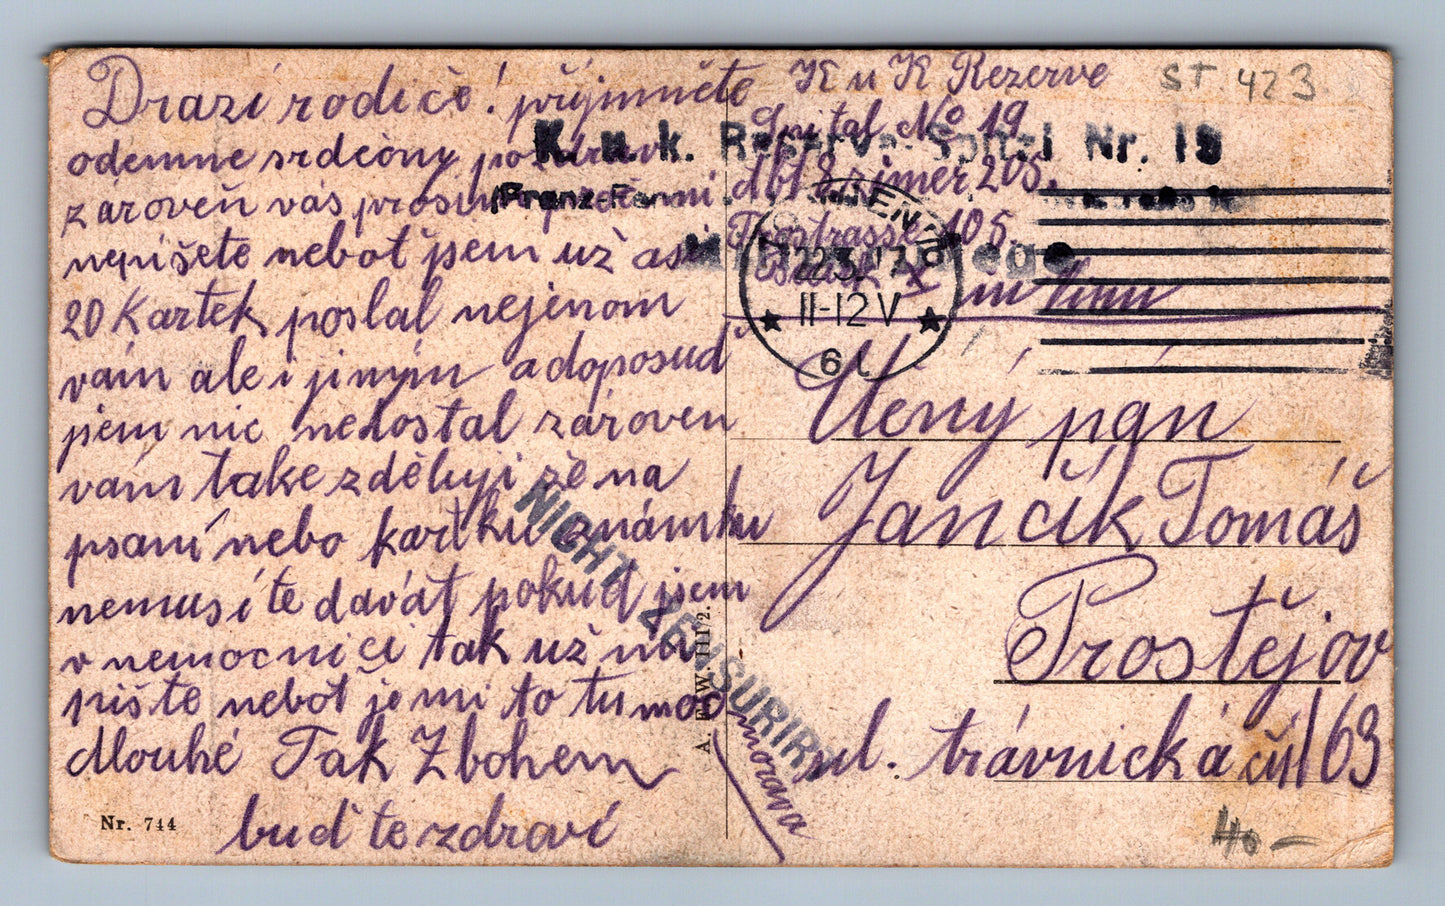 Drazí rodiče! přijmněte
odemne srdečný pozdrav
zároveň vás prosím
nepíšete neboť jsem už asi
20 Kartek poslal nejenom
vám ale i jiným a doposud
jsem nic nedostal zároven
vám take zděluji že na
psaní nebo kartku známku
nemusíte davát pokud jsem
v nemocnici tak už mi
pište nebot je mi to tu moc
dlouhé Tak Zbohem
buďte zdraví
Nr. 744
K u K Rezerve
Spital No 19
Abt 8 zimer 205.
105.
Bezirk X
K. u. k. Reserve-Spital Nr. 19
WIEN
22.3.17
11-12V
6
NICHT ZENSURIRT
A. F. W. III/2.
Ctený pan
Jančik Tomáš
Prostějov
ul. trávnická čís 163
morava
ST. 423
40-